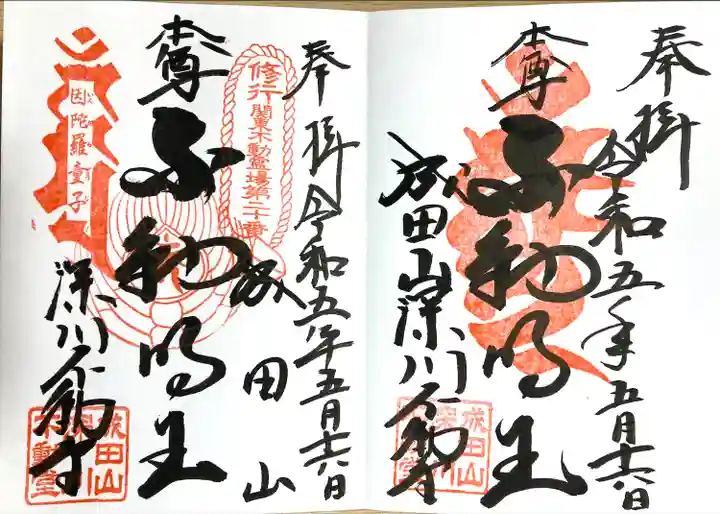 奉拝
令和五年五月十六日
本尊
不動明王
成田山深川不動尊
成田山
深川
不動堂
奉拝
令和五年五月十六日
修行
関東不動霊場第二十番
成田山
本尊
不動明王
因陀羅童子
いんだらどうじ
深川不動尊
成田山
深川
不動堂